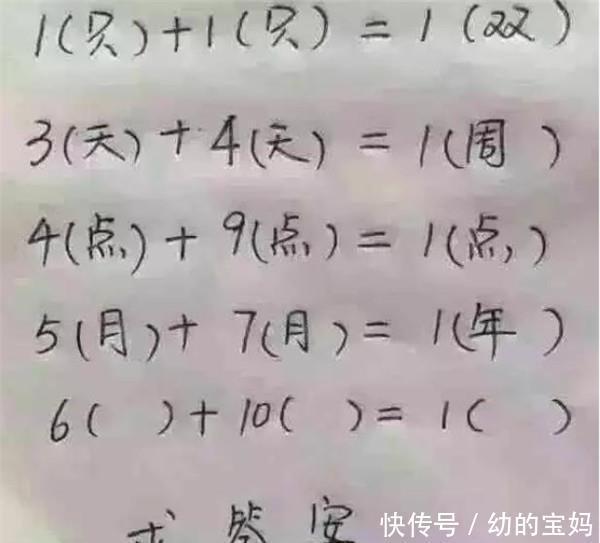 1(只)+1(只)=1(双)
3(天)+4(天)=1(周)
4(点)+9(点)=1(点)
5(月)+7(月)=1(年)
6( )+10( )=1( )
求答案
快传号/幼的宝妈